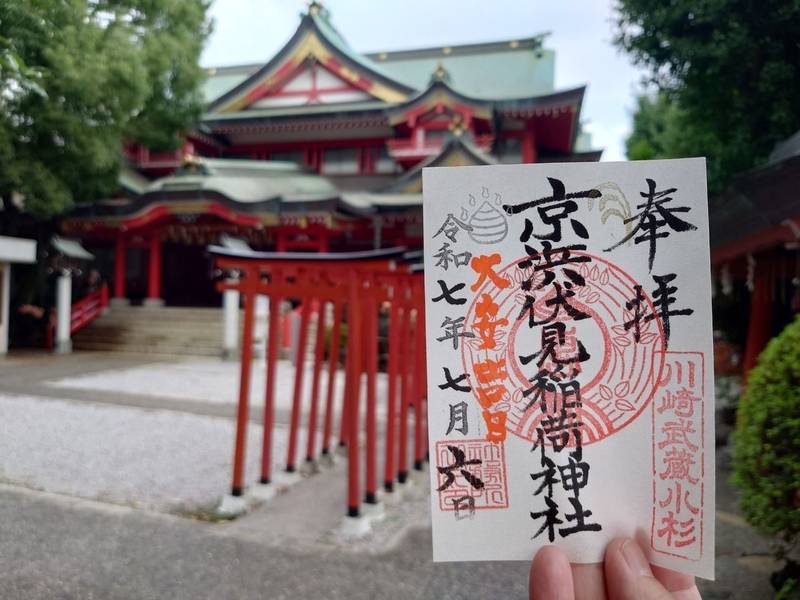 奉拝
川崎武蔵小杉
京浜伏見稲荷神社
大安吉日
令和七年七月六日